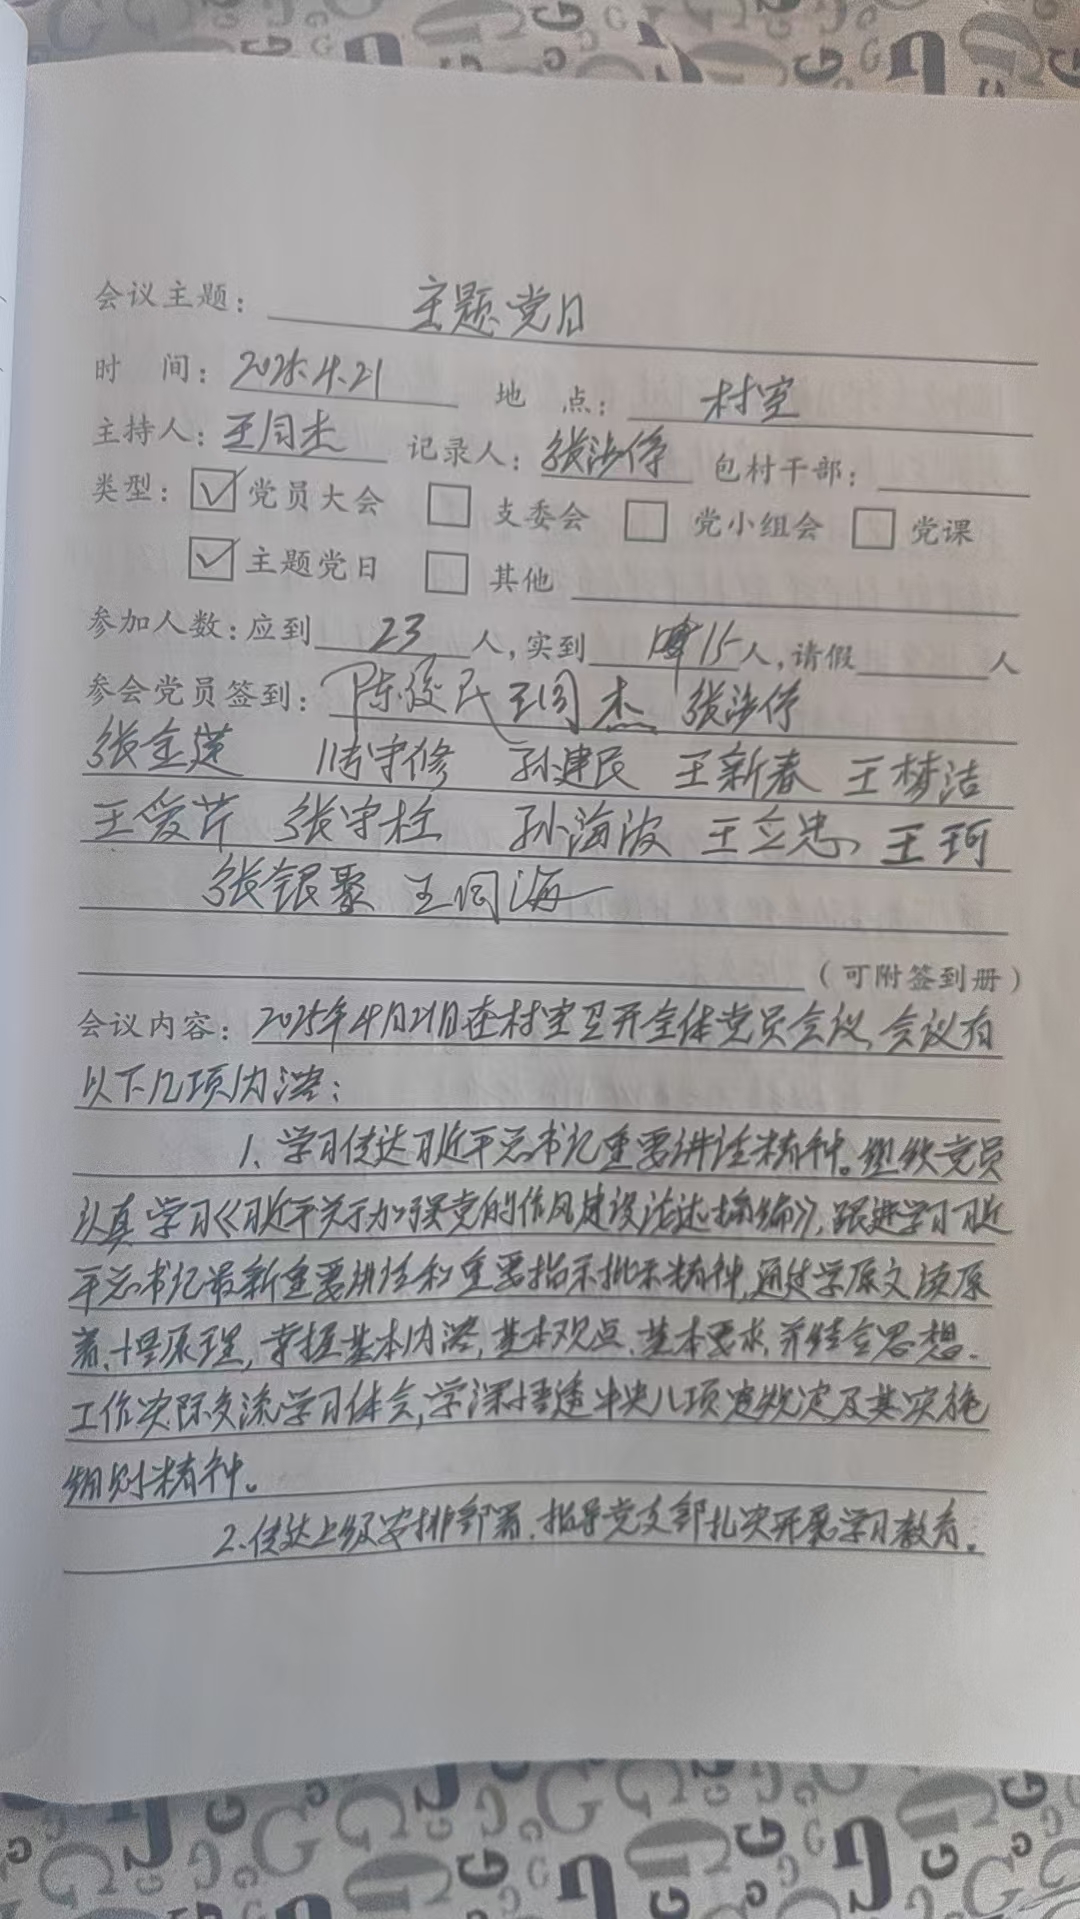 会议主题： 主题党日
时 间：2025.4.21 地 点： 村室
主持人：王同杰 记录人：张海停 包村干部：
类型： 党员大会 支委会 党小组会 党课
主题党日 其他
参加人数：应到 23 人，实到 15 人，请假 人
参会党员签到： 陈俊民 王同杰 张海停
张金莲 张守修 孙建民 王新春 王梦洁
王爱芹 张守栓 孙海波 王立忠 王珂
张银聚 王同海
（可附签到册）
会议内容：2025年4月21日在村室召开全体党员会议，会议有
以下几项内容：
1、学习传达习近平总书记重要讲话精神。组织党员
认真学习《习近平关于加强党的作风建设论述摘编》，跟进学习习近
平总书记最新重要讲话和重要指示批示精神，通过学原文读原
著、悟原理，掌握基本内容，基本观点、基本要求，并结合思想、
工作实际交流学习体会，学深悟透中央八项规定及其实施
细则精神。
2、传达上级安排部署，指导党支部扎实开展学习教育。